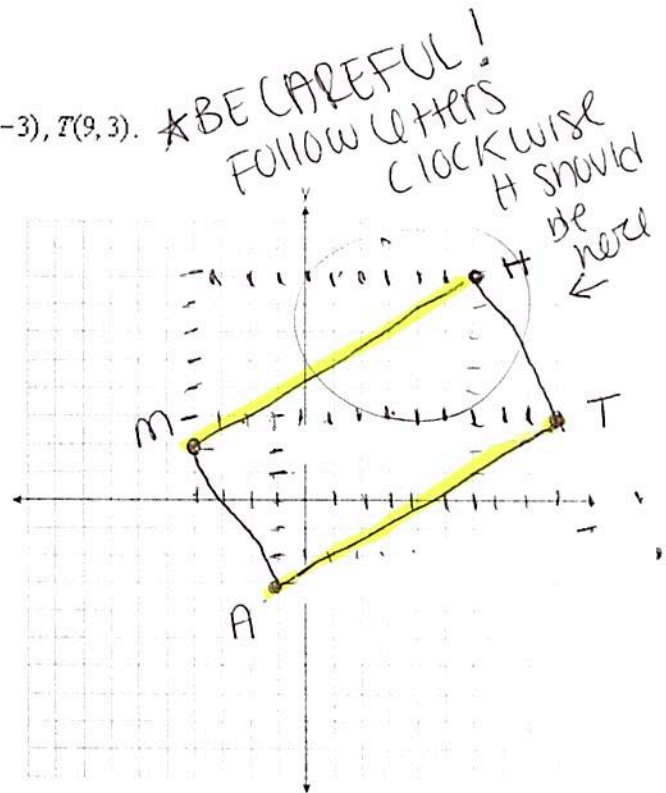 -3), T(9, 3).
★BE CAREFUL!
FOLLOW LETTERS
CLOCKWISE
H SHOULD
BE
HERE
Y
H
M
T
A